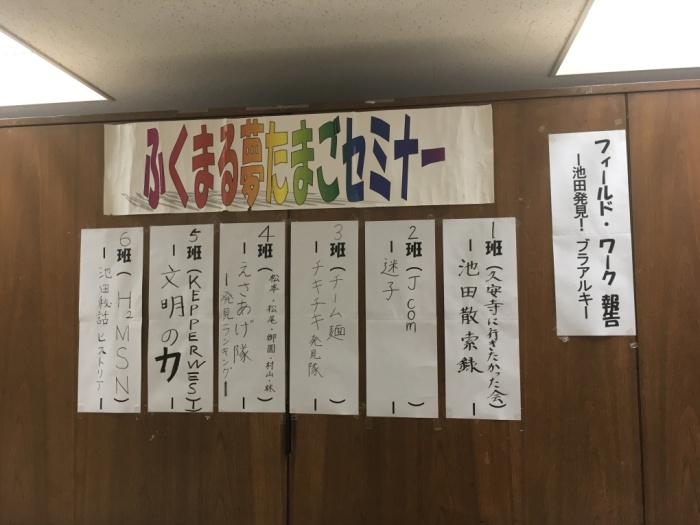 ふくまる夢たまごセミナー
フィールド・ワーク報告
ー池田発見!ブラアルキー
1班(久安寺に行きたかった会)
ー池田散策録ー
2班(J com)
ー迷子ー
3班(チーム麺)
ーチキチキ発見隊ー
4班(松本・松尾・御園・村山・林)
ーえさあげ隊
ー発見ランキングー
5班(KEPPERWEST)
ー文明の力ー
6班(H2MSN)
ー池田秘話ヒストリアー